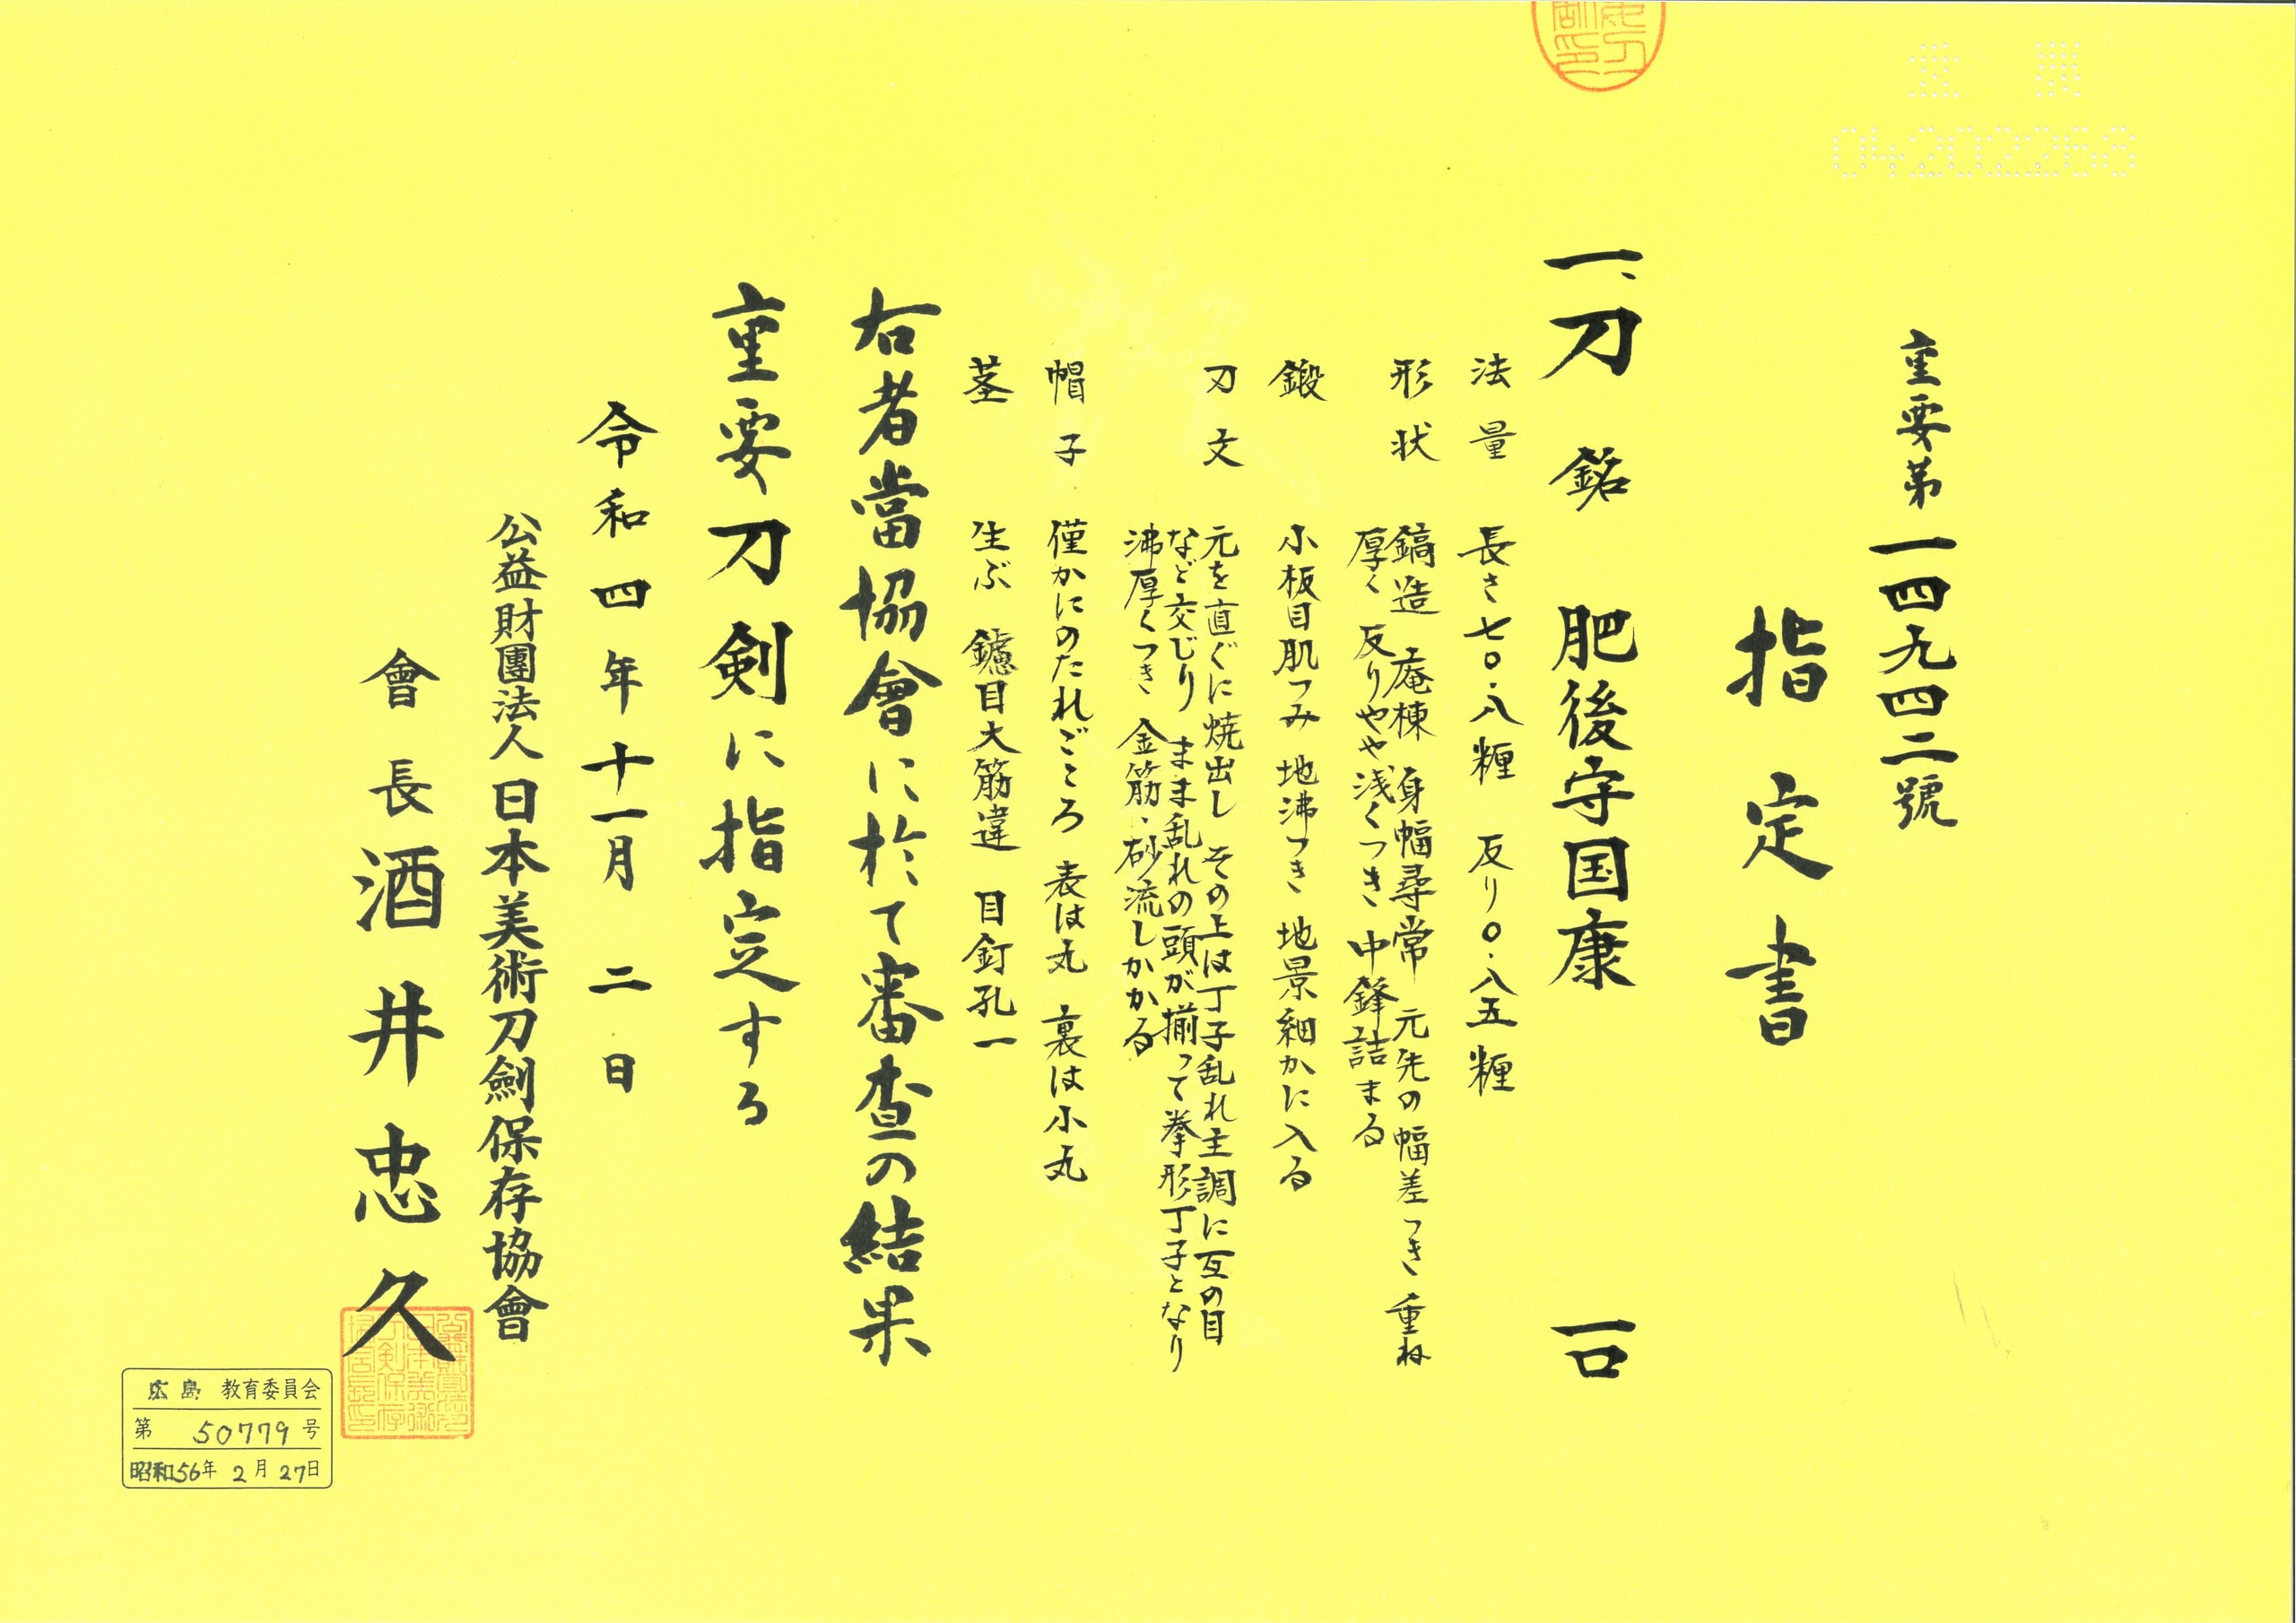 重要第一四九四二號
指定書
一、刀 銘 肥後守国康 一口
法量 長さ七〇.八糎 反り〇.八五糎
形状 鎬造 庵棟 身幅尋常 元先の幅差つき 重ね
厚く 反りやや浅くつき 中鋒詰まる
鍛 小板目肌つみ 地沸つき 地景細かに入る
刃文 元を直ぐに焼出し その上は丁子乱れ主調に互の目
など交じり まま乱れの頭が揃って拳形丁子となり
沸厚くつき 金筋・砂流しかかる
帽子 僅かにのたれごころ 表は丸 裏は小丸
茎 生ぶ 鑢目大筋違 目釘孔一
右者當協會に於て審査の結果
重要刀剣に指定する
令和四年十一月二日
公益財團法人日本美術刀劍保存協會
會長 酒井忠久
広島 教育委員会
第 50779 号
昭和56年 2月 27日
04202268